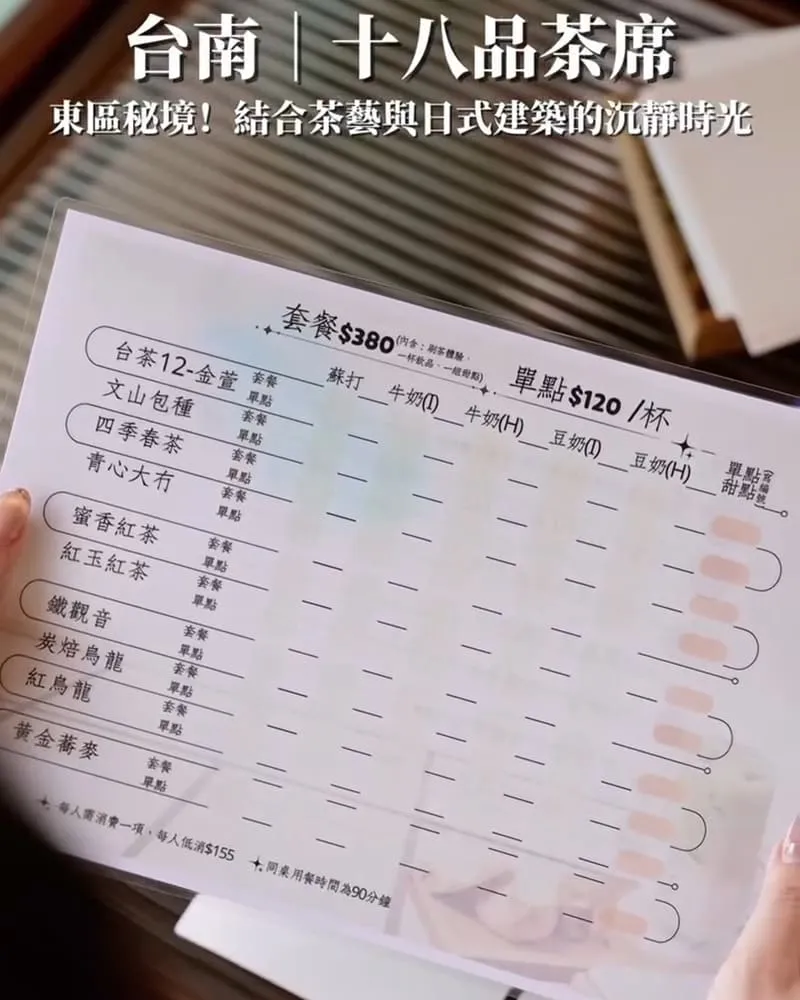 台南｜十八品茶席
東區秘境！結合茶藝與日式建築的沉靜時光
套餐$380(內含：刷茶體驗、
一杯飲品、一組甜點)
單點$120 /杯
蘇打 牛奶(I) 牛奶(H) 豆奶(I) 豆奶(H) 單點甜點(寫編號)
台茶12-金萱 套餐 單點
文山包種 套餐 單點
四季春茶 套餐 單點
青心大冇 套餐 單點
蜜香紅茶 套餐 單點
紅玉紅茶 套餐 單點
鐵觀音 套餐 單點
炭焙烏龍 套餐 單點
紅烏龍 套餐 單點
黃金蕎麥 套餐 單點
每人需消費一項，每人低消$155
同桌用餐時間為90分鐘